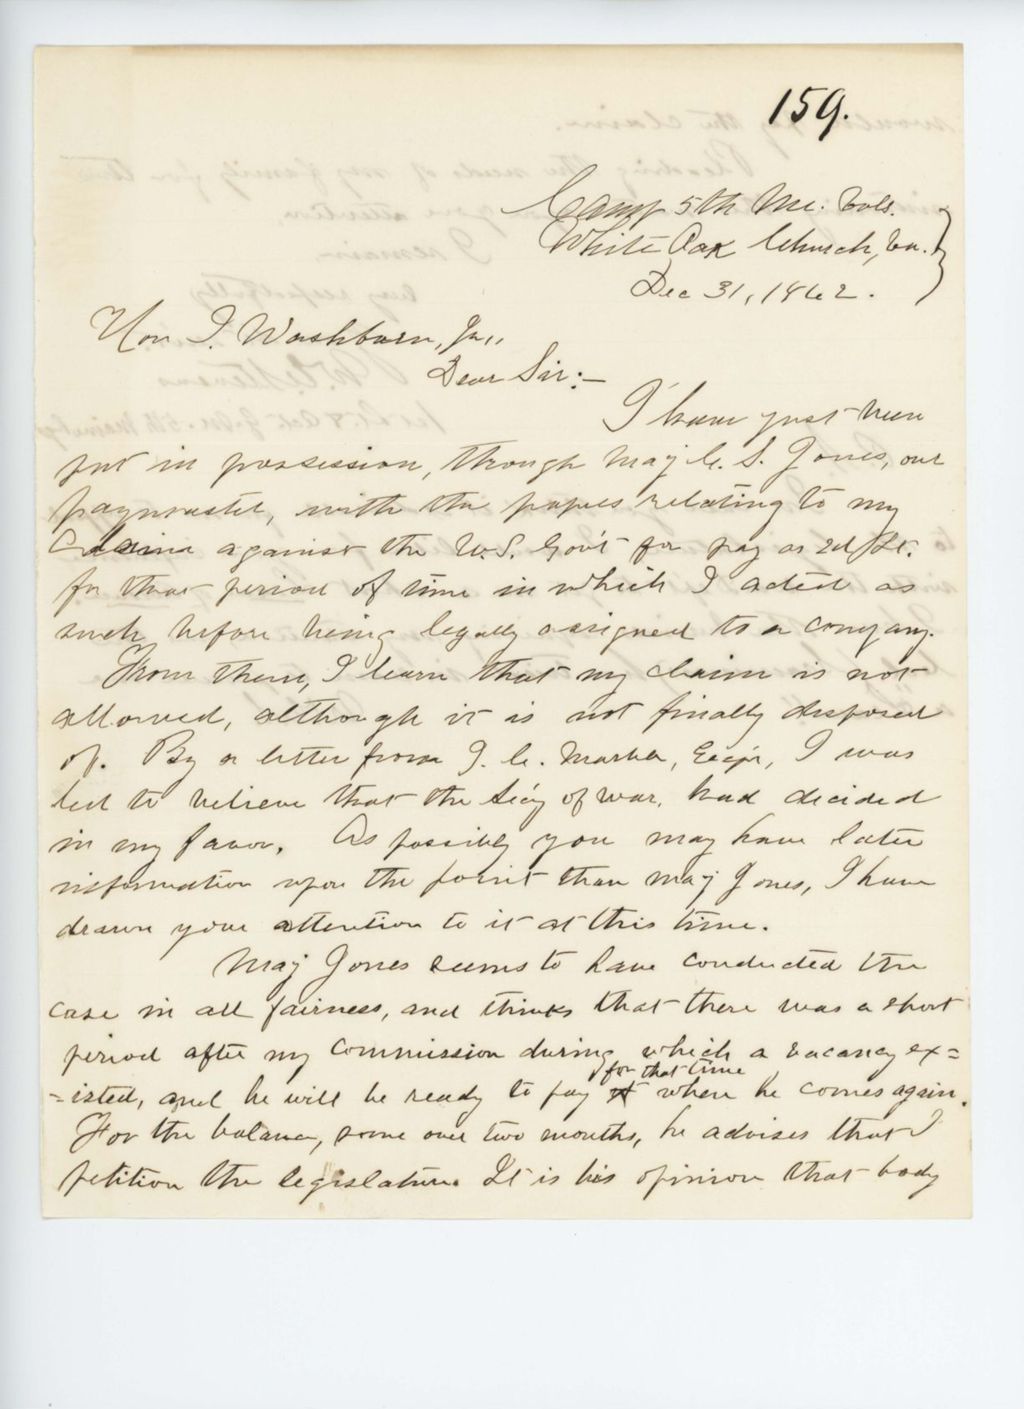 159.
Camp 5th Me. Vols.
White Oak Church, Va.
Dec 31, 1862.
Hon I. Washburn, Jr.,
Dear Sir:—
I have just been
put in possession, through Maj C. S. Jones, our
paymaster, with the papers relating to my
claim against the U.S. Gov't for pay as 2d Lt.
for that period of time in which I acted as
such, before being legally assigned to a company.
From them, I learn that my claim is not
allowed, although it is not finally disposed
of. By a letter from J. C. , Esqr, I was
led to believe that the Sec'y of War, had decided
in my favor. As possibly you may have later
information upon the point than Maj Jones, I have
drawn your attention to it at this time.
Maj Jones seems to have conducted the
case in all fairness, and thinks that there was a short
period after my commission during which a vacancy ex=
for that time
=isted, and he will be ready to pay it where he comes again.
For the balance, some over two months, he advises that I
petition the legislature. It is his opinion that body